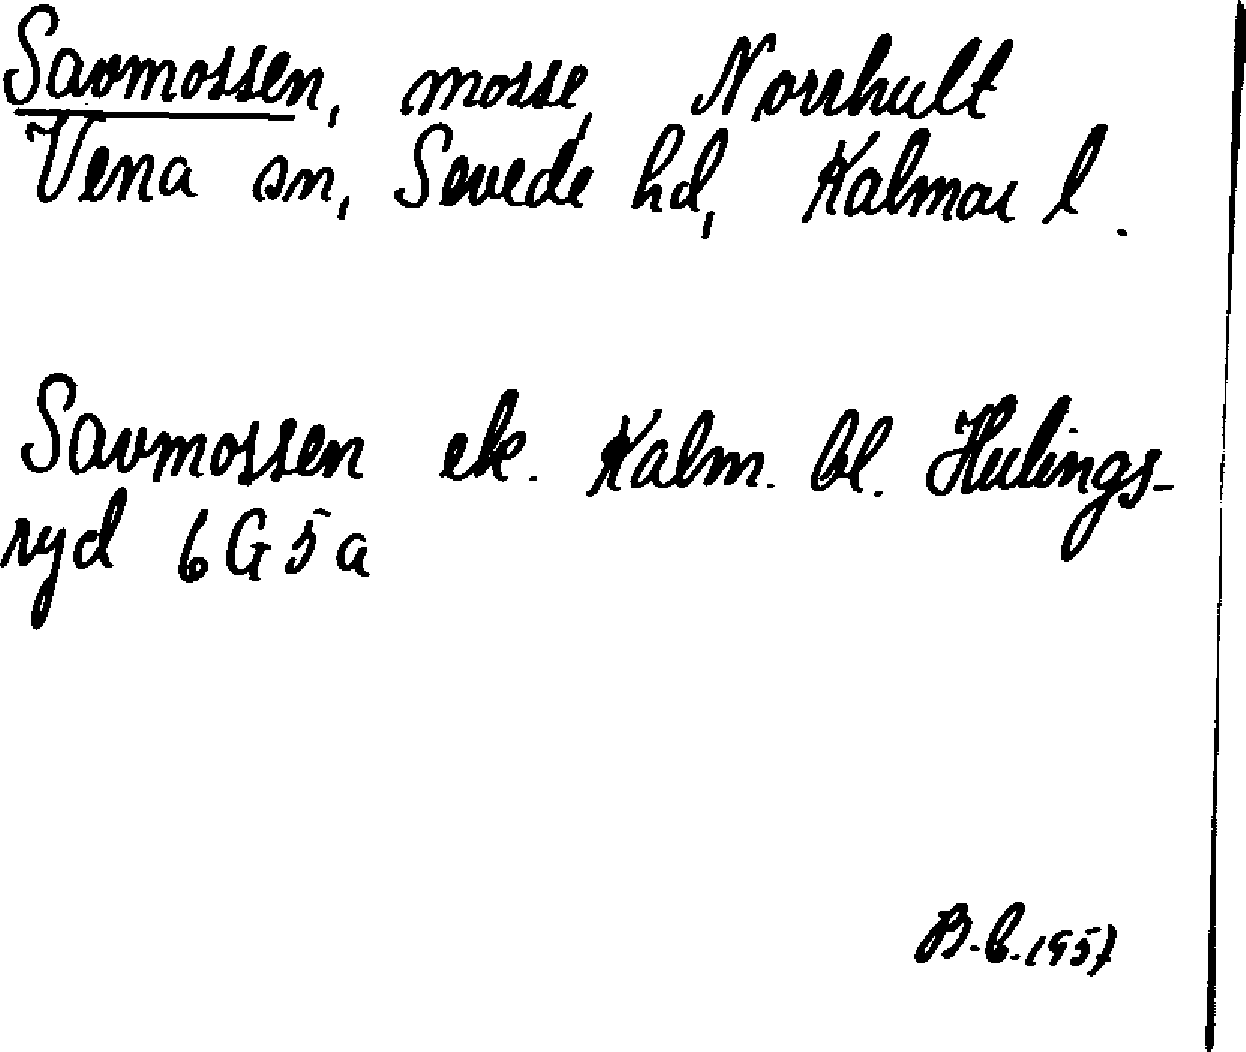 Savmossen, mosse, Norrhult
Vena sn, Sevede hd, Kalmar l.
Savmossen ek. Kalm. bl. Hulings-
ryd 6G5a
B.b. 1957